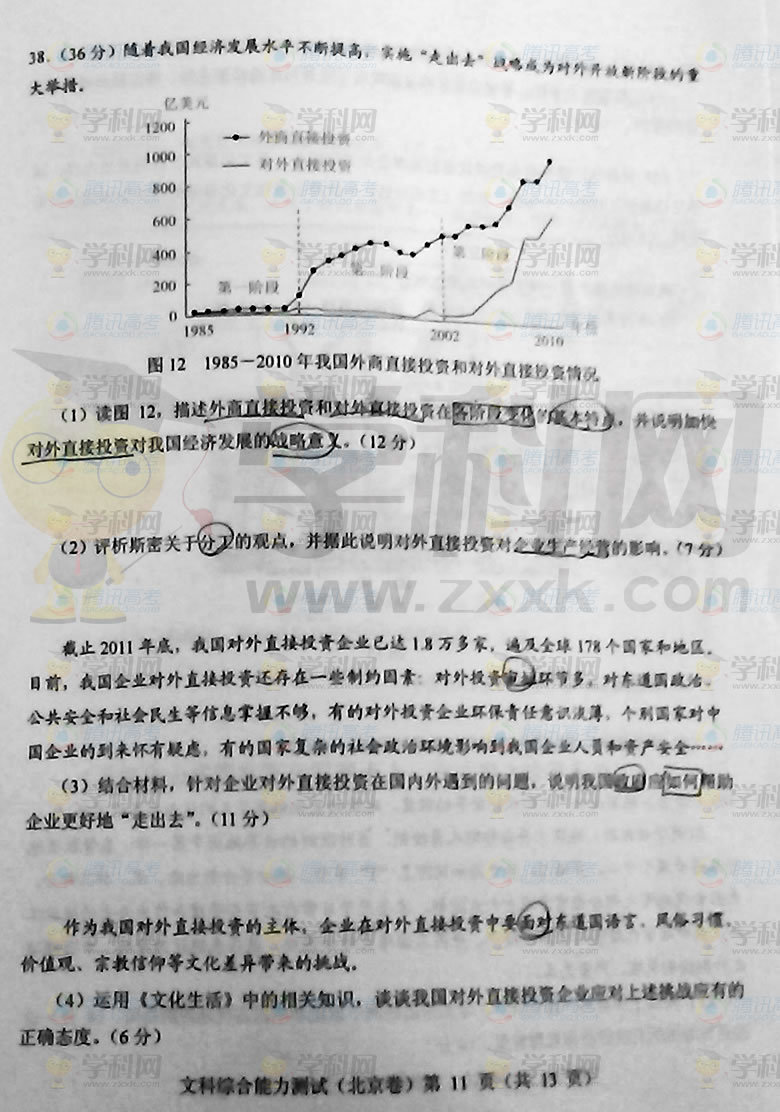 38.（36分）随着我国经济发展水平不断提高，实施“走出去”战略成为对外开放新阶段的重
大举措。
亿美元
1200
1000
800
600
400
200
0
外商直接投资
对外直接投资
第一阶段
第二阶段
第三阶段
1985
1992
2002
2010
年份
图12 1985－2010年我国外商直接投资和对外直接投资情况
（1）读图12，描述外商直接投资和对外直接投资在各阶段变化的基本特点，并说明加快
对外直接投资对我国经济发展的战略意义。（12分）
（2）评析斯密关于分工的观点，并据此说明对外直接投资对企业生产经营的影响。（7分）
截止2011年底，我国对外直接投资企业已达1.8万多家，遍及全球178个国家和地区。
目前，我国企业对外直接投资还存在一些制约因素：对外投资审批环节多，对东道国政治、
公共安全和社会民生等信息掌握不够，有的对外投资企业环保责任意识淡薄，个别国家对中
国企业的到来怀有疑虑，有的国家复杂的社会政治环境影响到我国企业人员和资产安全……
（3）结合材料，针对企业对外直接投资在国内外遇到的问题，说明我国政府应如何帮助
企业更好地“走出去”。（11分）
作为我国对外直接投资的主体，企业在对外直接投资中要面对东道国语言、风俗习惯、
价值观、宗教信仰等文化差异带来的挑战。
（4）运用《文化生活》中的相关知识，谈谈我国对外直接投资企业应对上述挑战应有的
正确态度。（6分）
文科综合能力测试（北京卷）第 11 页（共 13 页）
学科网
www.zxxk.com
腾讯高考
GAOKAO.QQ.COM